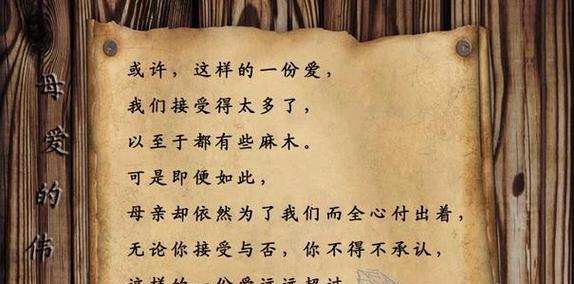 母爱的伟
或许，这样的一份爱，
我们接受得太多了，
以至于都有些麻木。
可是即便如此，
母亲却依然为了我们而全心付出着，
无论你接受与否，你不得不承认，
这样的一份爱远远超过